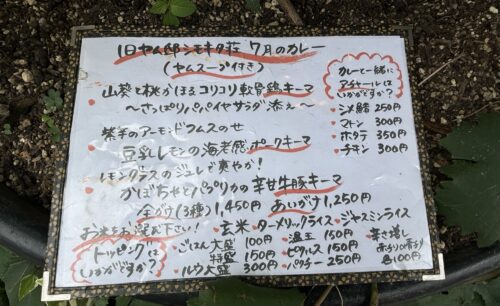 旧ヤム邸シモキタ荘 7月のカレー
(ヤムスープ付き)
山葵と桃がほるコリコリ軟骨鶏キーマ
〜さっぱりパパイヤサラダ添え〜
茎芋のアーモンドフムスのせ
豆乳レモンの海老感ポークキーマ
レモングラスのジュレで爽やか!
かぼちゃとパプリカの辛甘牛豚キーマ
全がけ(3種)1,450円 あいがけ1,250円
お米をお選び下さい! ・玄米・ターメリックライス・ジャスミンライス
トッピングは
いかがですか?
・ごはん大盛 100円
特盛 150円
・ルウ大盛 300円
・温玉 150円
・ピクルス 150円
・パクチー 250円
辛さ増し
各100円
カレーと一緒に
アチャールは
いかがですか?
・シメ鯖 250円
・マトン 300円
・ホタテ 350円
・チキン 300円